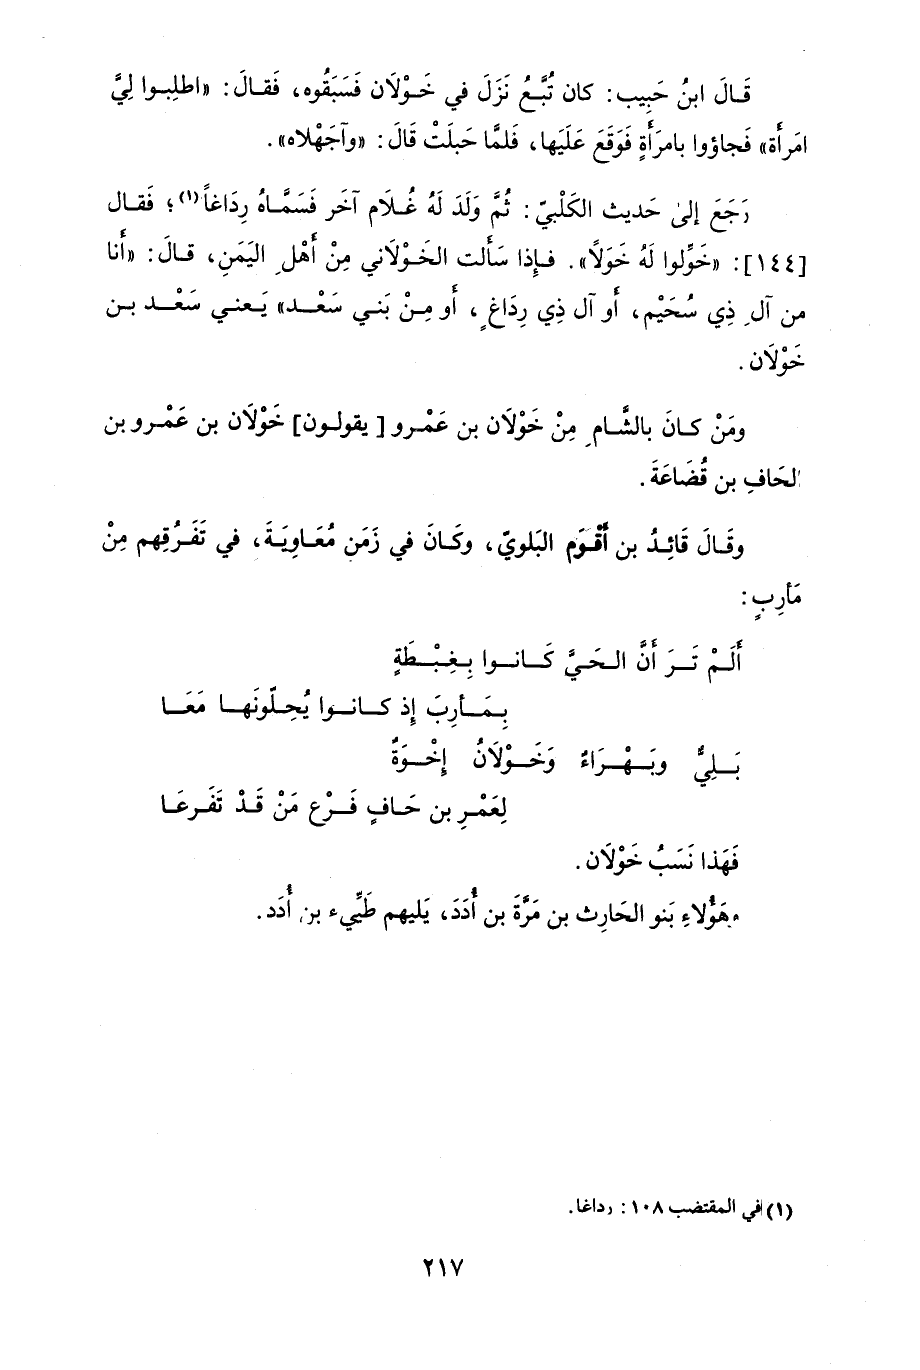 قَالَ ابنُ حَبِيب: كان تُبَّعُ نَزَلَ في خَوْلَان فَسَبَقُوه، فَقالَ: «اطلِبوا لِيَّ
امَرأَة» فَجاؤوا بامرَأةٍ فَوَقَعَ عَلَيها، فَلمَّا حَبلَتْ قَالَ: «وآجَهْلاه».
رَجَعَ إلىٰ حَديث الكَلْبيّ: ثُمَّ وَلَدَ لَهُ غُلَام آخَر فَسَمَّاهُ رِدَاغاً(١)؛ فَقال
[١٤٤]: «خَوِّلوا لَهُ خَوَلاً». فإذا سَأَلت الخَوْلَاني مِنْ أَهْلِ اليَمنِ، قالَ: «أَنا
من آلِ ذِي سُحَيْم، أو آل ذِي رِدَاغٍ، أو مِنْ بَني سَعْد» يَعني سَعْد بن
خَوْلَان.
ومَنْ كانَ بالشَّامِ مِنْ خَوْلَان بن عَمْرو [يقولون] خَوْلَان بن عَمْرو بن
الحَافِ بن قُضَاعَةَ.
وقَالَ قَائِدُ بن أَقْوَم البَلويّ، وكَانَ في زَمَن مُعَاويَةَ، في تَفَرُقِهم مِنْ
مَأرِبٍ:
أَلَمْ تَرَ أَنَّ الحَيَّ كَانوا بِغِبْطَةٍ
بِمَأرِبَ إِذ كانوا يُحِلّونَها مَعَا
بَلِيُّ وبَهْرَاءُ وَخَوْلَانُ إِخْوَةٌ
لِعَمْرِ بن حَافٍ فَرْعِ مَنْ قَدْ تَفَرعَا
فَهَذا نَسَبُ خَوْلَان.
وهَؤُلاءِ بَنو الحَارِث بن مَرَّةَ بن أُدَدَ، يَليهم طَيِّيء بن أُدَد.
(١) في المقتضب ١٠٨: رداغا.
٢١٧